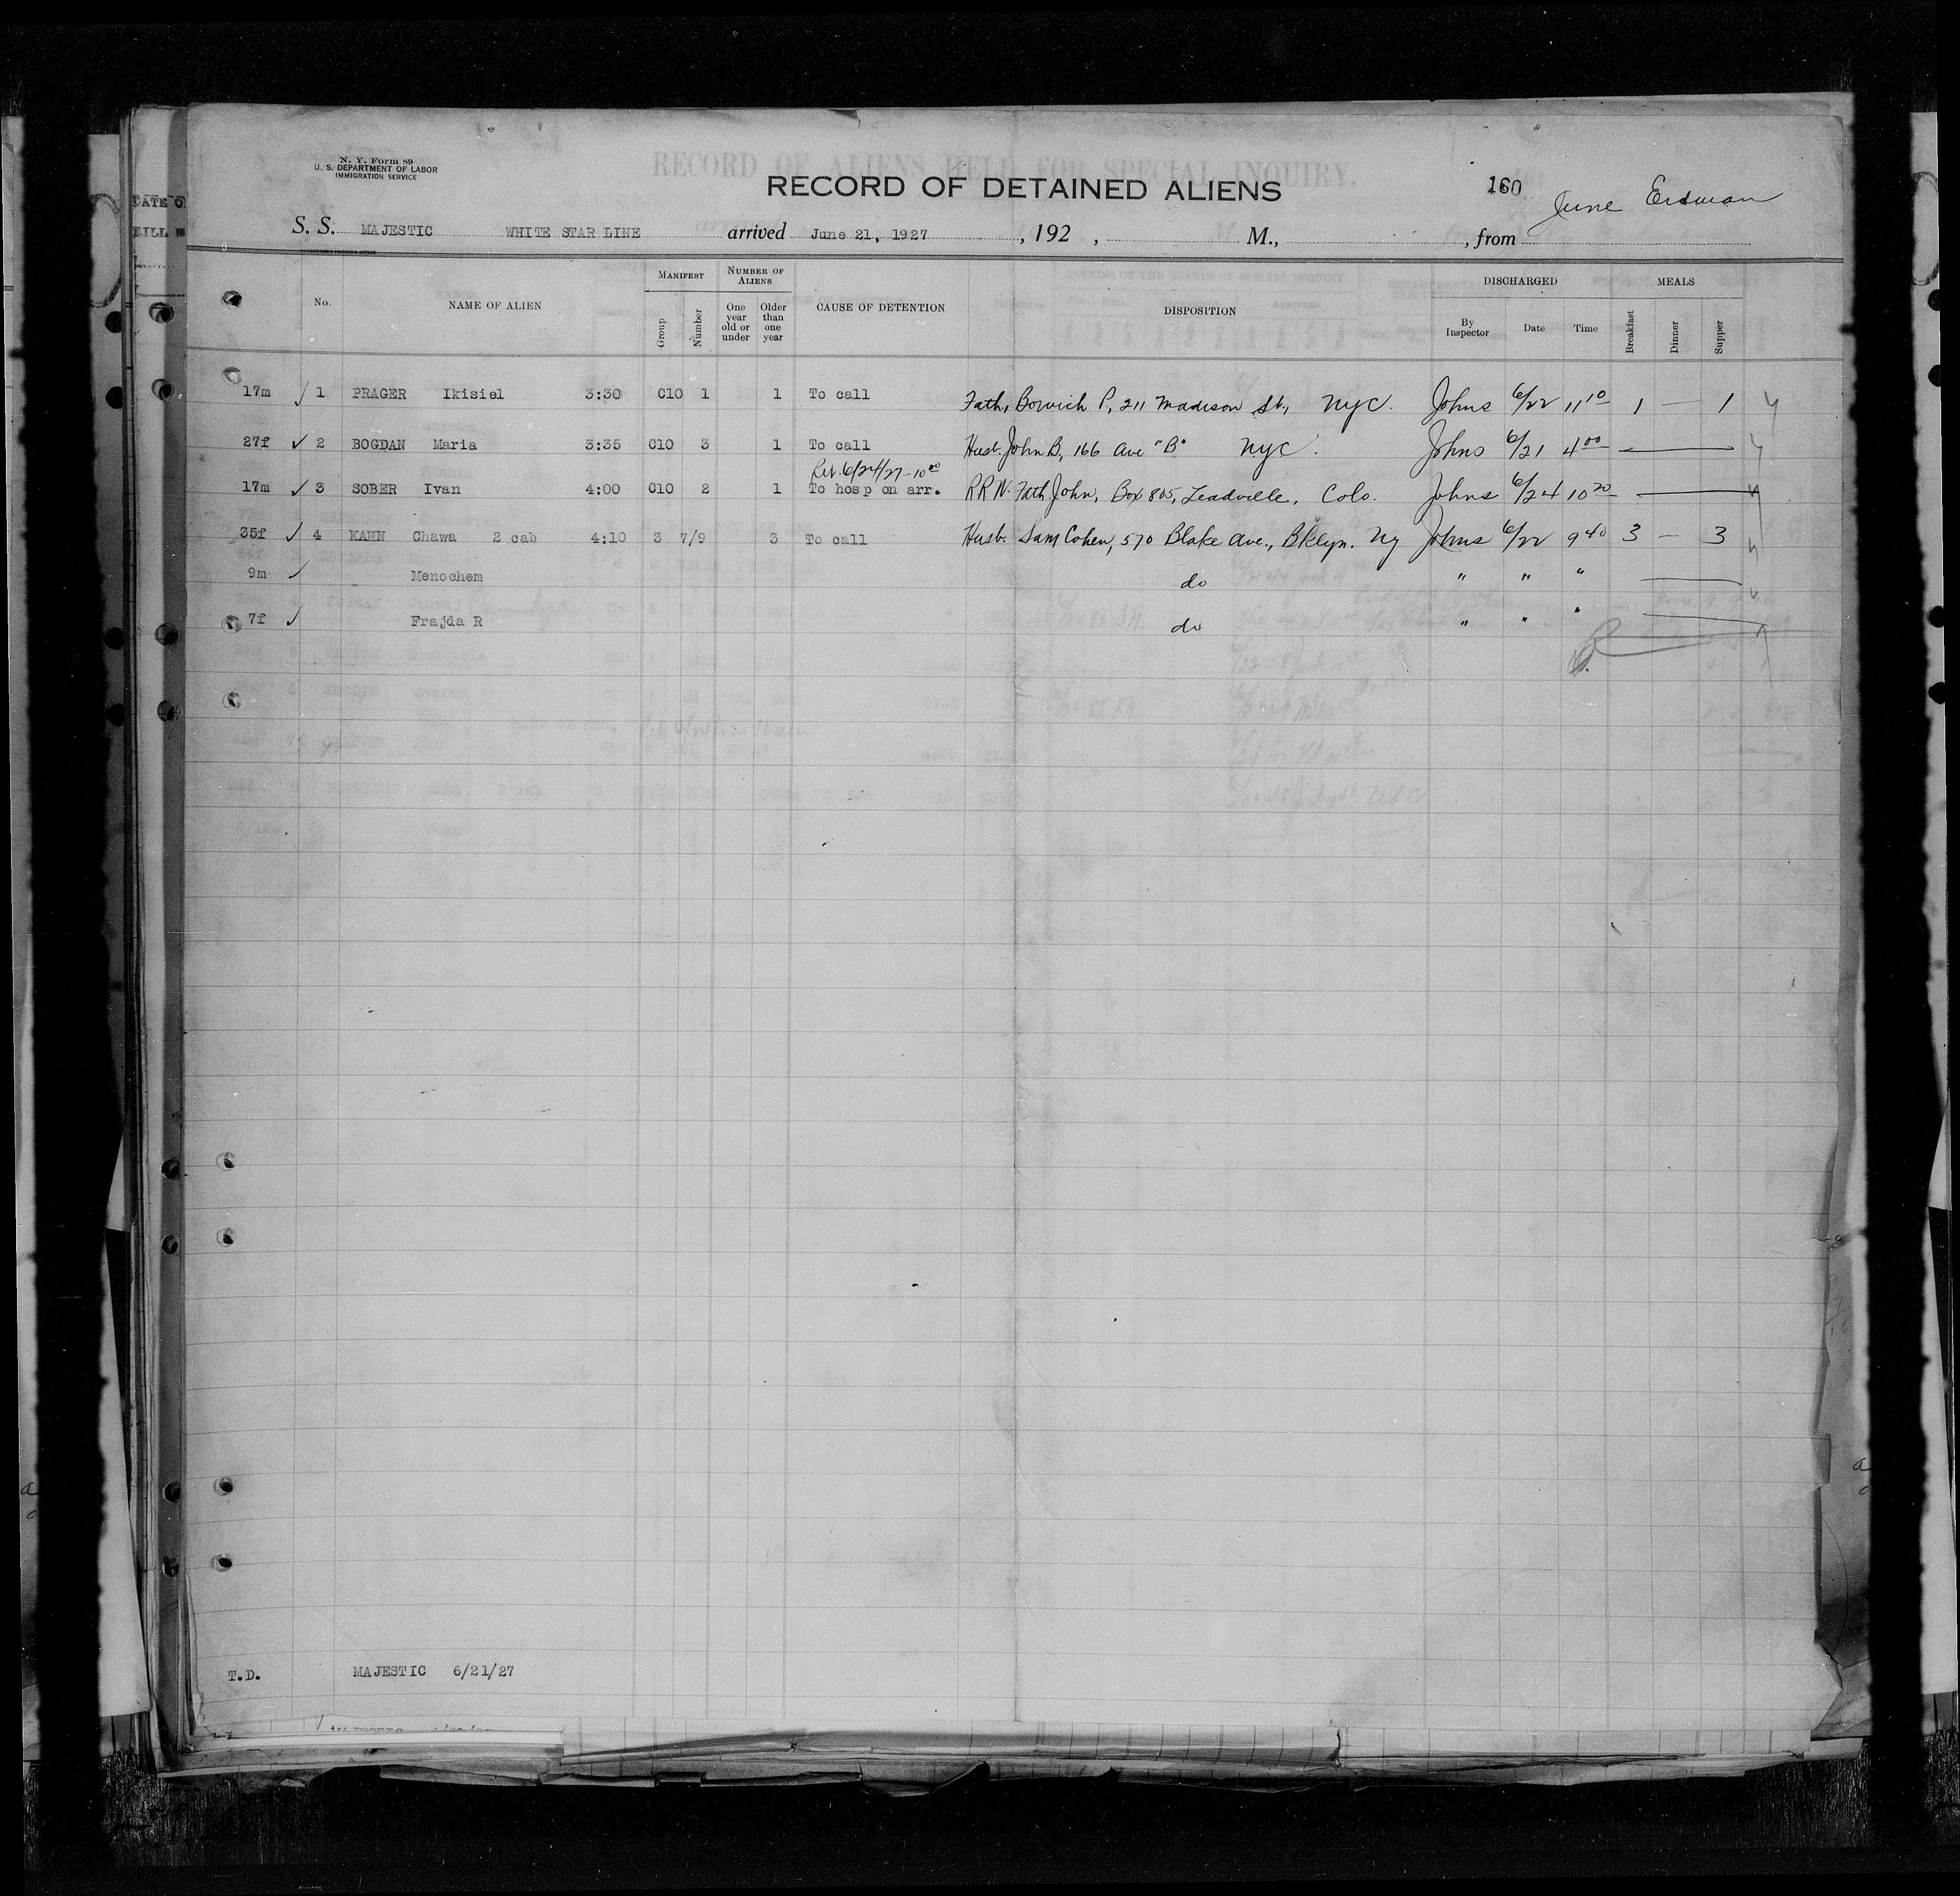 N. Y. Form 89
U. S. DEPARTMENT OF LABOR
IMMIGRATION SERVICE
RECORD OF ALIENS HELD FOR SPECIAL INQUIRY.
RECORD OF DETAINED ALIENS
160
June Erdman
S. S. MAJESTIC WHITE STAR LINE arrived June 21, 1927 , 192 , M., , from
No. NAME OF ALIEN MANIFEST Group Number NUMBER OF ALIENS One year old or under Older than one year CAUSE OF DETENTION DISPOSITION DISCHARGED By Inspector Date Time MEALS Breakfast Dinner Supper
17m ✓ 1 PRAGER Ikisiel 3:30 C10 1 1 To call Fath, Borwich P, 211 Madison St., NYC. Johns 6/22 11 10 1 — 1
27f ✓ 2 BOGDAN Maria 3:35 C10 3 1 To call Husb. John B, 166 Ave "B" NYC. Johns 6/21 4 00 —
Rel. 6/24/27-10 00
17m ✓ 3 SOBER Ivan 4:00 C10 2 1 To hosp on arr. RRN. Fath John, Box 805, Leadville, Colo. Johns 6/24 10 20 —
35f ✓ 4 KAHN Chawa 2 cab 4:10 3 7/9 3 To call Husb. Sam Cohen, 570 Blake Ave., Bklyn. Ny Johns 6/22 9 40 3 — 3
9m ✓ Menochem do " " " —
7f ✓ Frajda R do " " " —
T.D. MAJESTIC 6/21/27